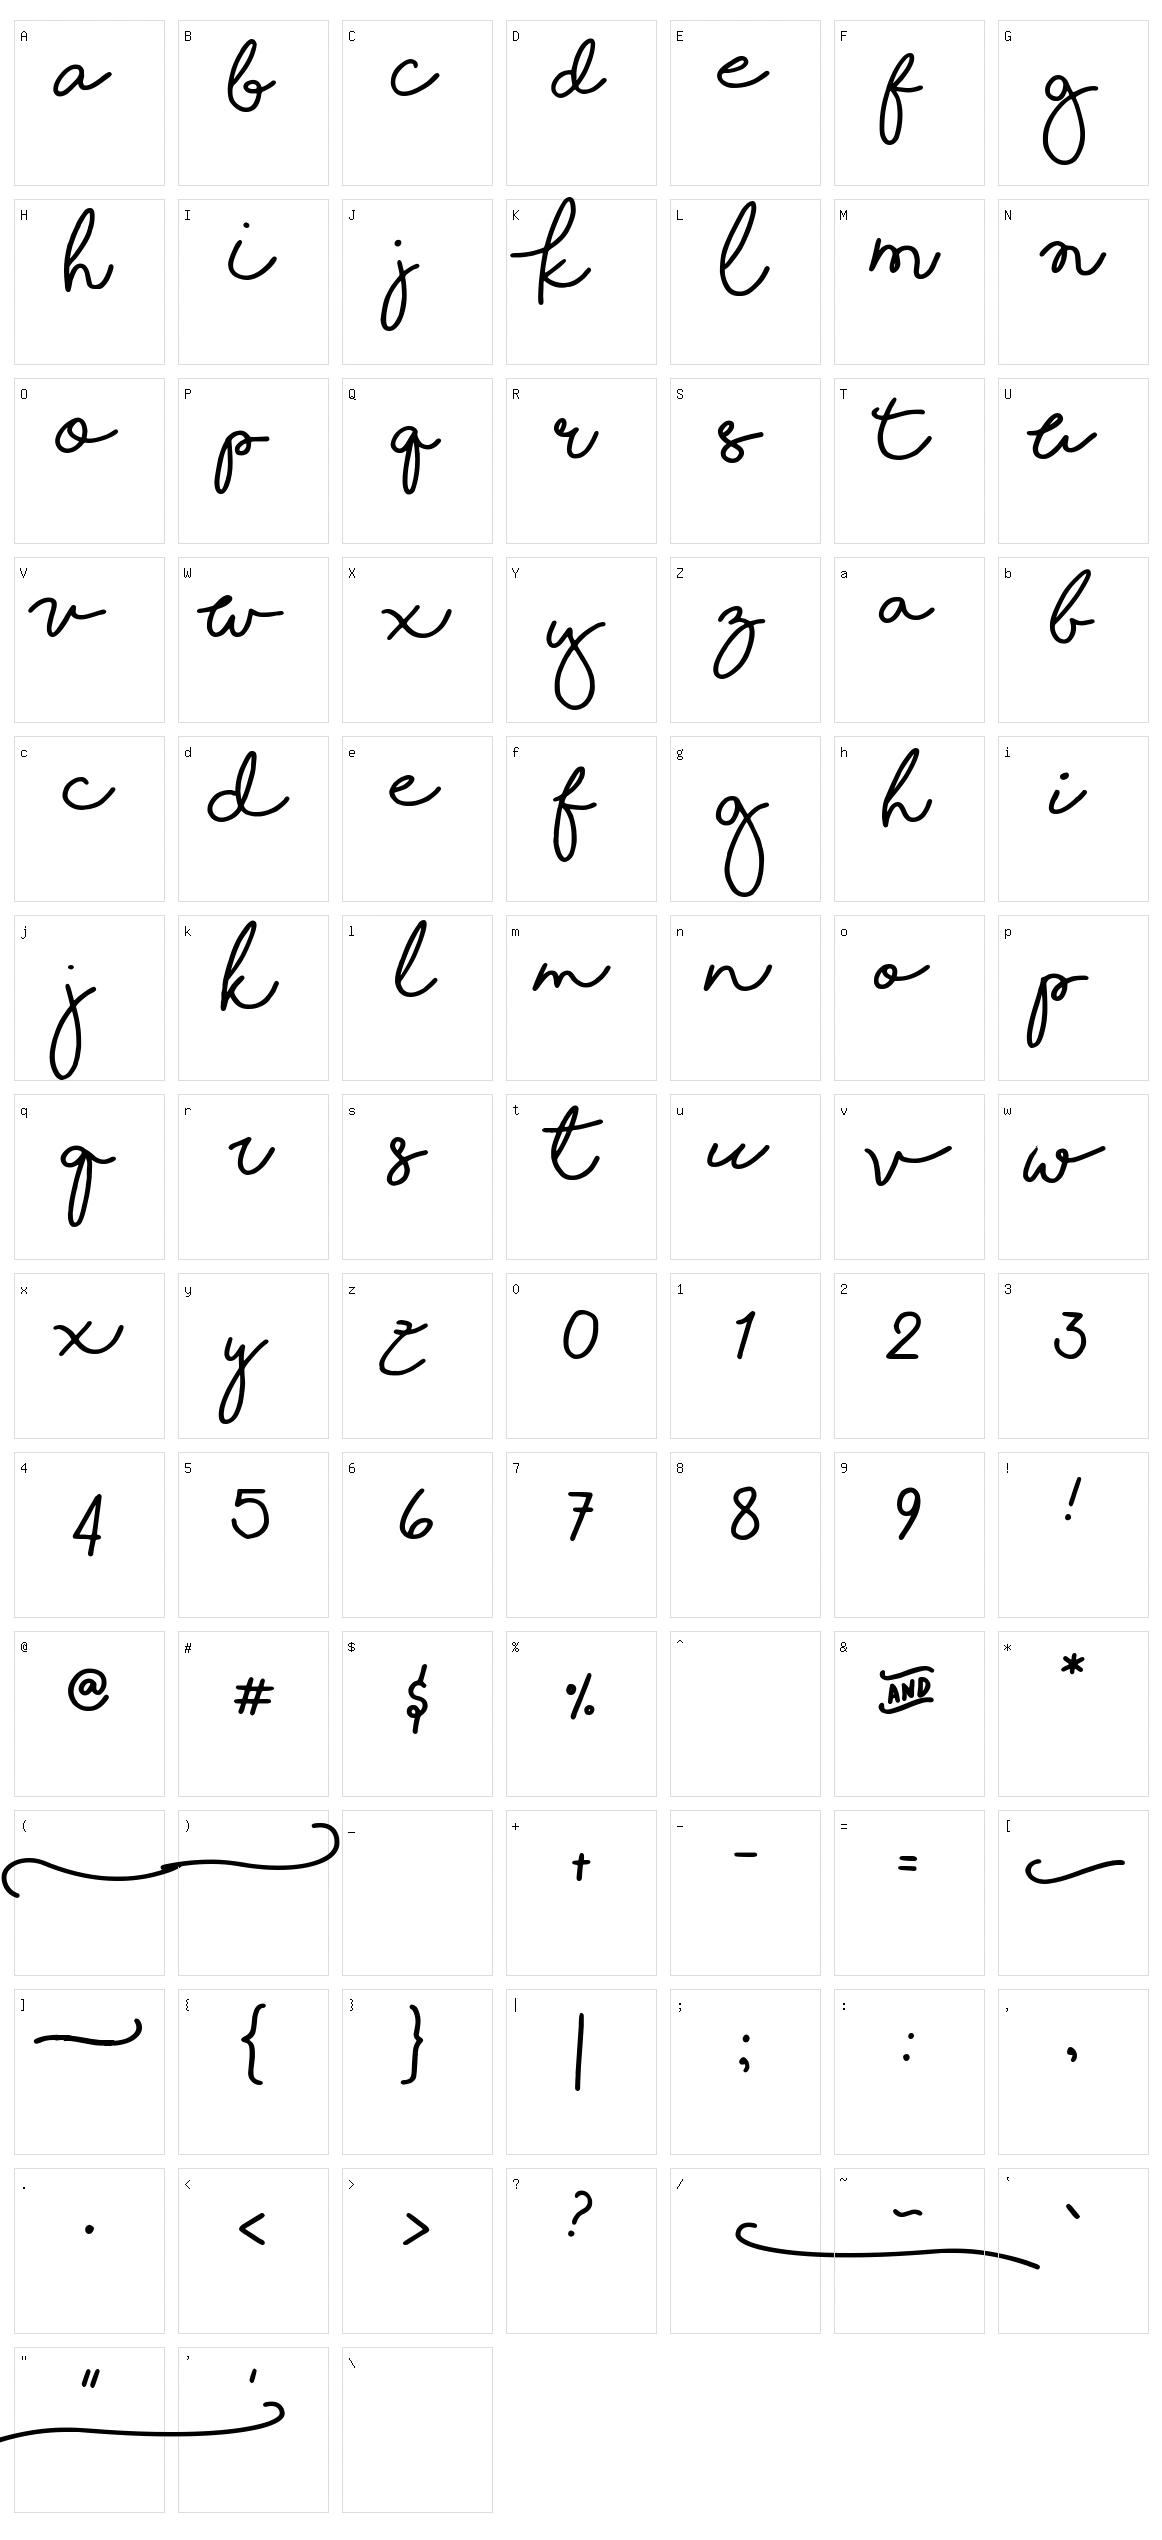 A B C D E F G
a b c d e f g
H I J K L M N
h i j k l m n
O P Q R S T U
o p q r s t u
V W X Y Z a b
v w x y z a b
c d e f g h i
c d e f g h i
j k l m n o p
j k l m n o p
q r s t u v w
q r s t u v w
x y z 0 1 2 3
x y z 0 1 2 3
4 5 6 7 8 9 !
4 5 6 7 8 9 !
@ # $ % ^ & *
@ # $ % AND *
( ) _ + - = [
+ - =
] { } | ; : ,
{ } | ; : ,
. < > ? / ~ ‘
. < > ? ~ `
" ’ \
" '